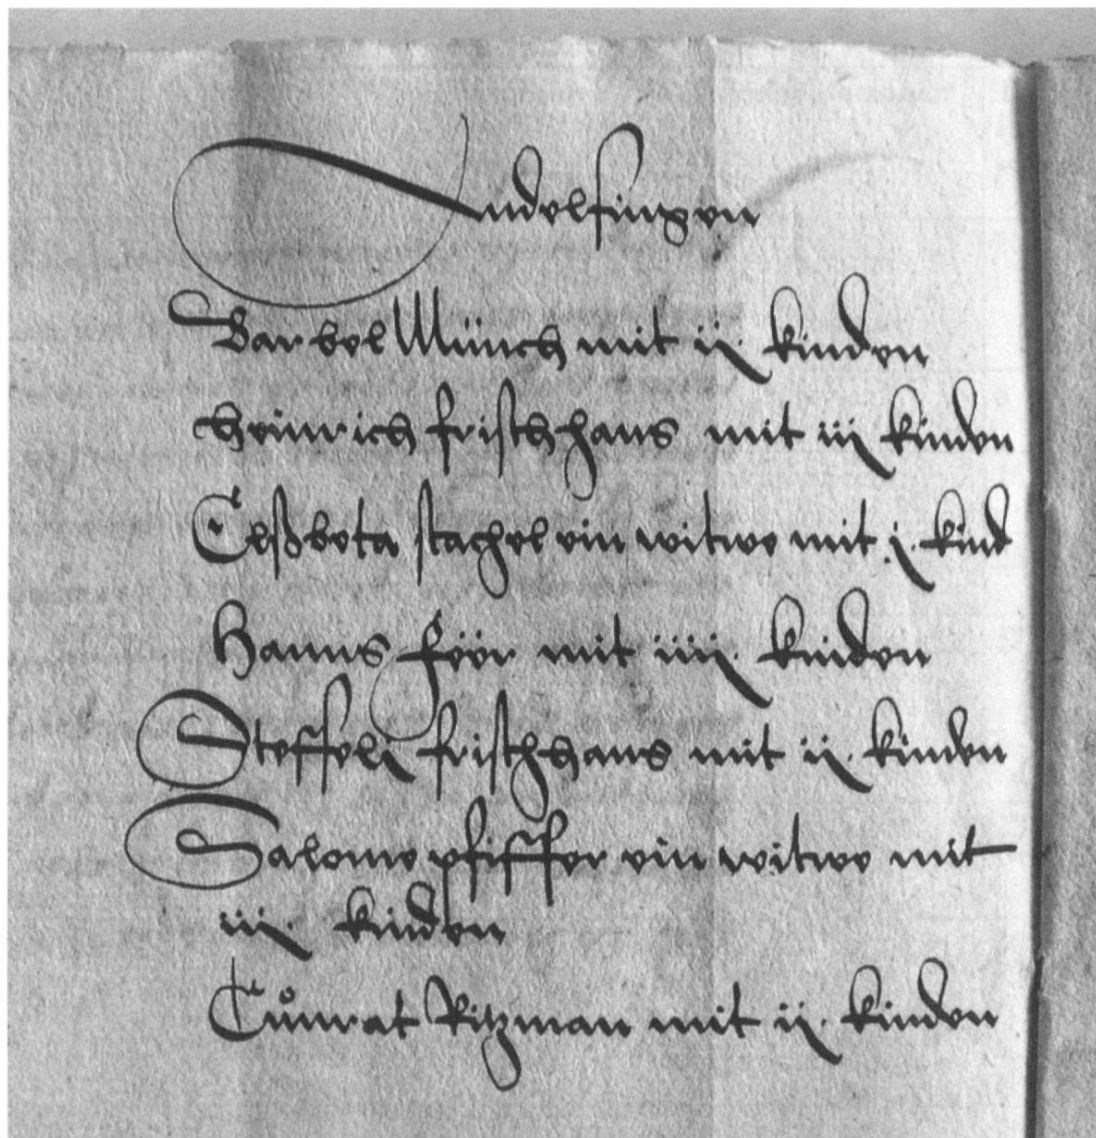 Andelfingen
Barbel Münch mit ij. kinden
Heinrich frischhans mit iij kinden
Elßbeta stachel ein witwe mit j. kind
Hanns föör mit iiij. kinden
Steffely frischhans mit ij. kinden
Salome pfiffer ein witwe mit
iij. kinden
Cůnrat Ritzman mit ij. kinden